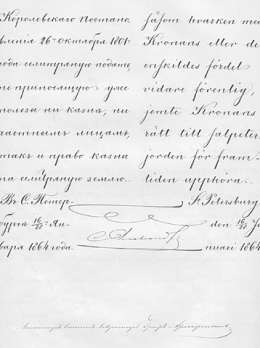 Королевскаго Постано-
вленія 26го октября 1801
года селитряную подать
не приносящую уже
пользы ни казнѣ, ни
частнымъ лицамъ,
такъ и право казны
на селитряную землю.
Въ С. Петер-
бургѣ 16/28го Ян-
варя 1864 года.
såsom hvarken med
Kronans eller de
enskildes fördel
vidare förenlig,
jemte Kronans
rätt till salpeter
jorden för fram-
tiden upphöra.
St Petersburg
den 16/28 Ja
nuari 1864